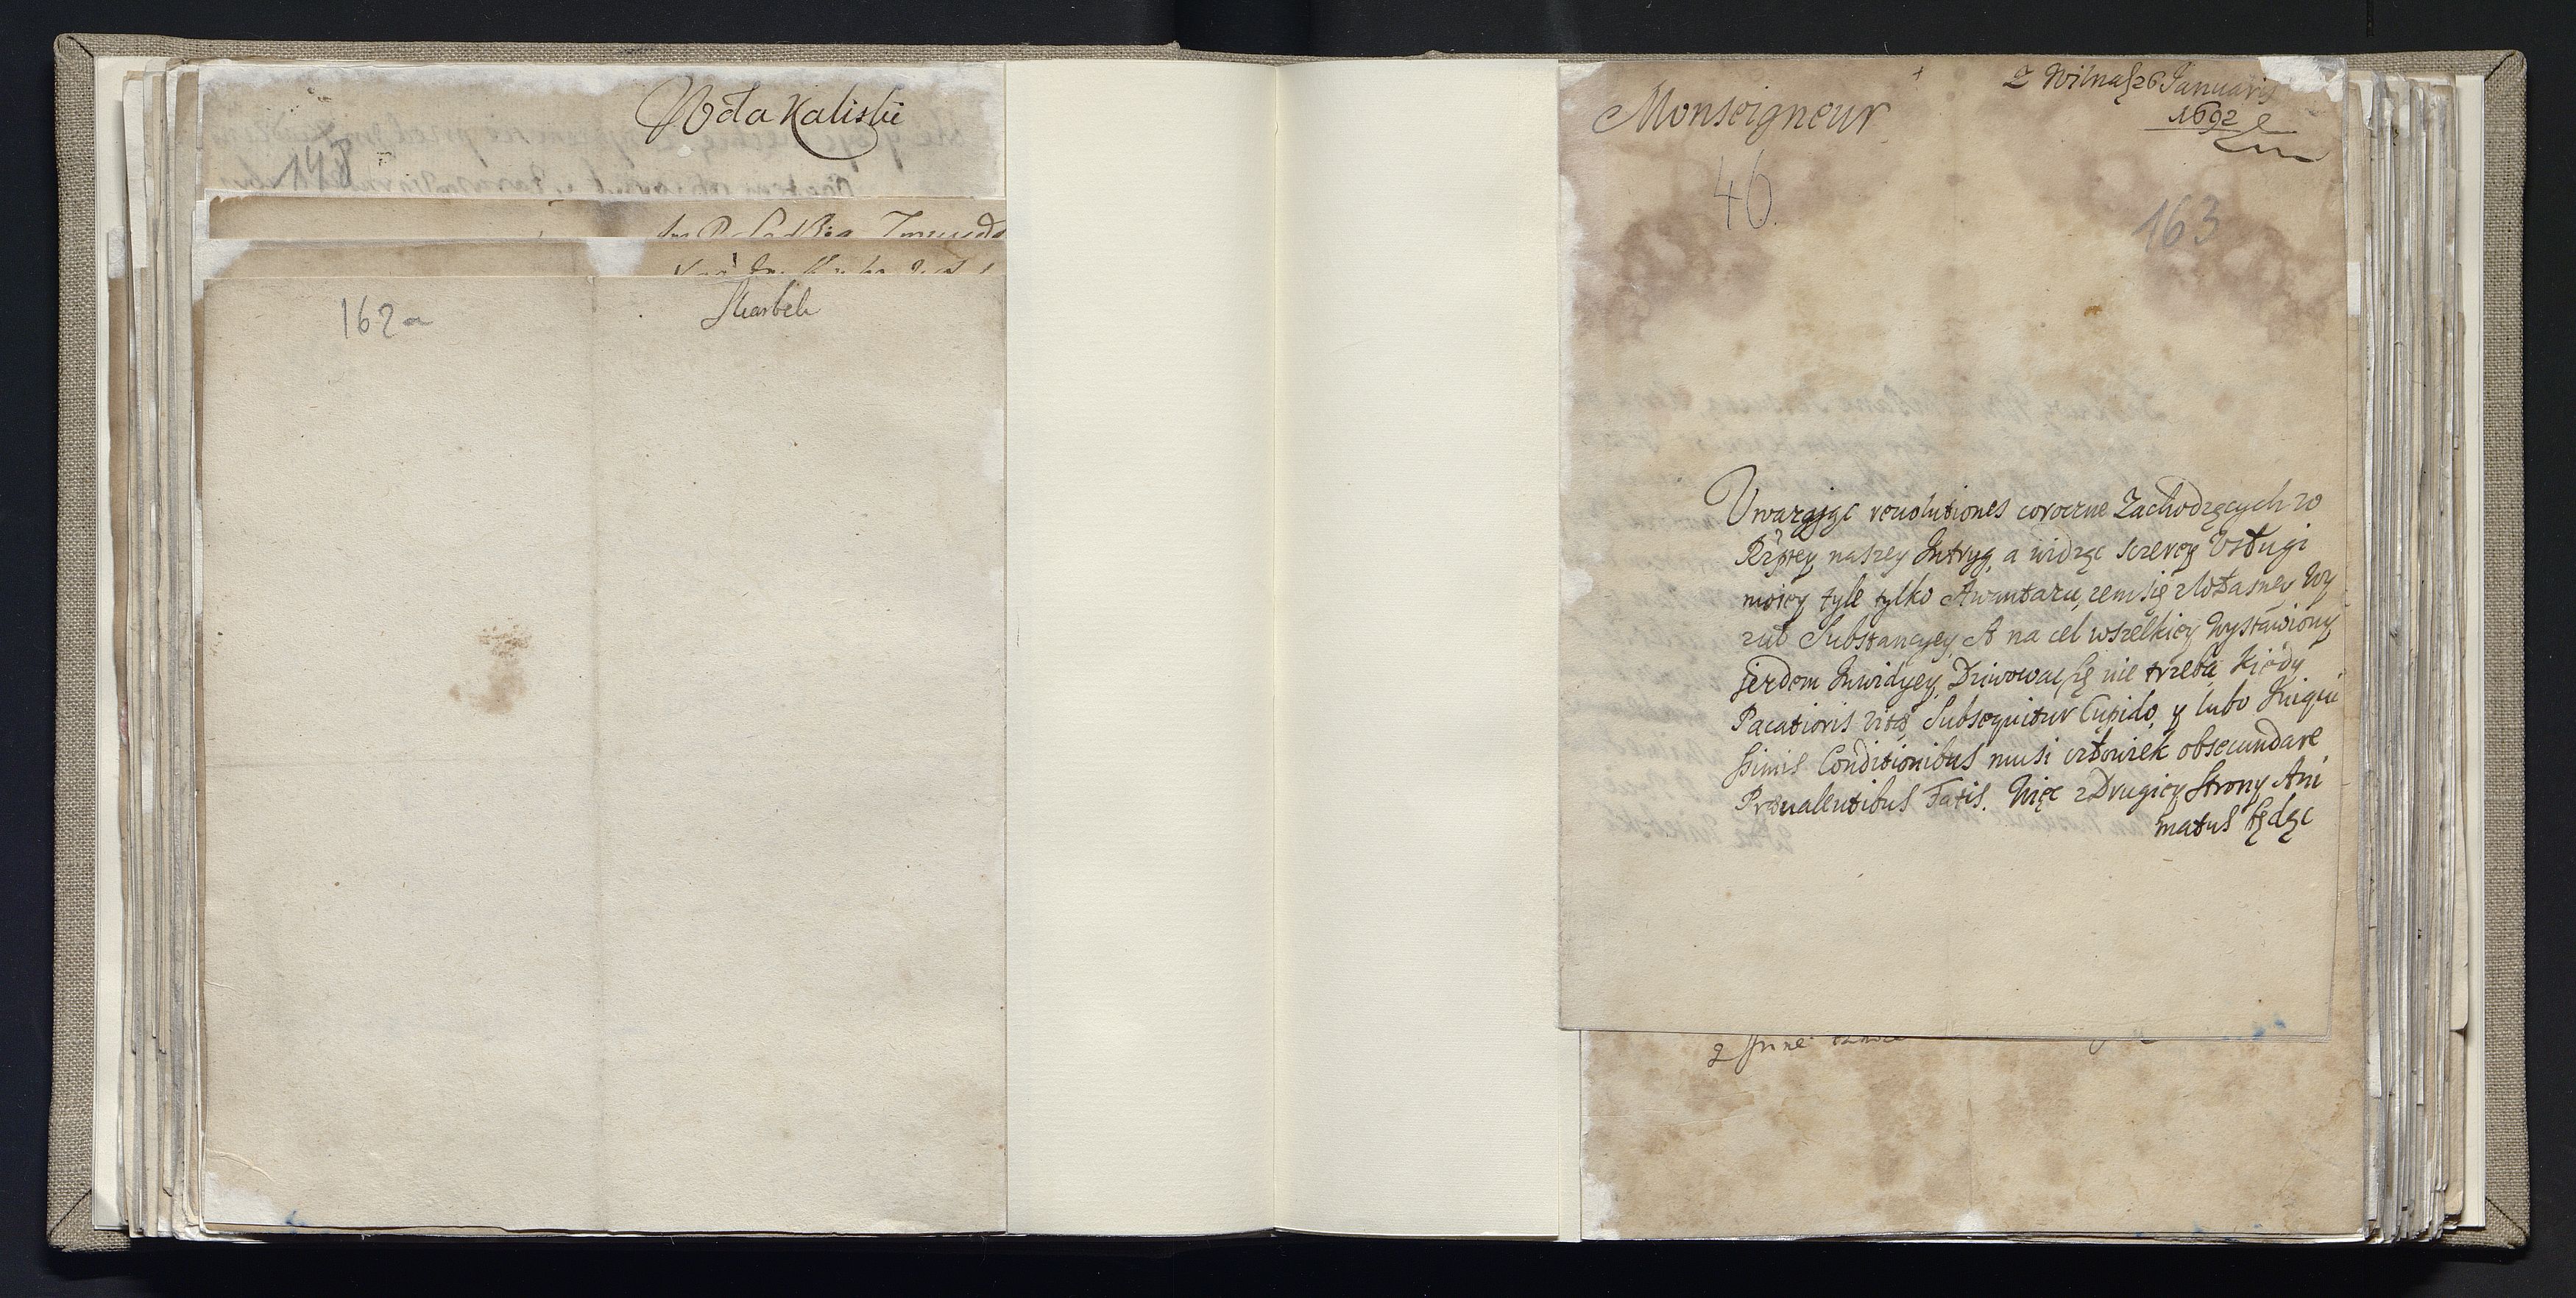 Wda Kaliski
148
162a
Skarbek
Monseigneur
z Wilna 26 Januarij
1692
46.
163
Uwazaiąc reuolutiones coroczne Zachodzących w
Rzptey naszey Intryg, a widząc sczerey Vsługi
moiey tyle tylko Awantazu, zem się własney Wy
zuł Substancyey A na cel wszelkiey wystawiony
jezdem Inwidyey, Dziwować się nie trzeba kiedy
Pacatioris vitæ Subsequitur Cupido, y lubo Iniqui
ssimis Conditionibus musi człowiek obsecundare
Præualentibus Fatis. Więc z Drugiey Strony Ani
matus będąc